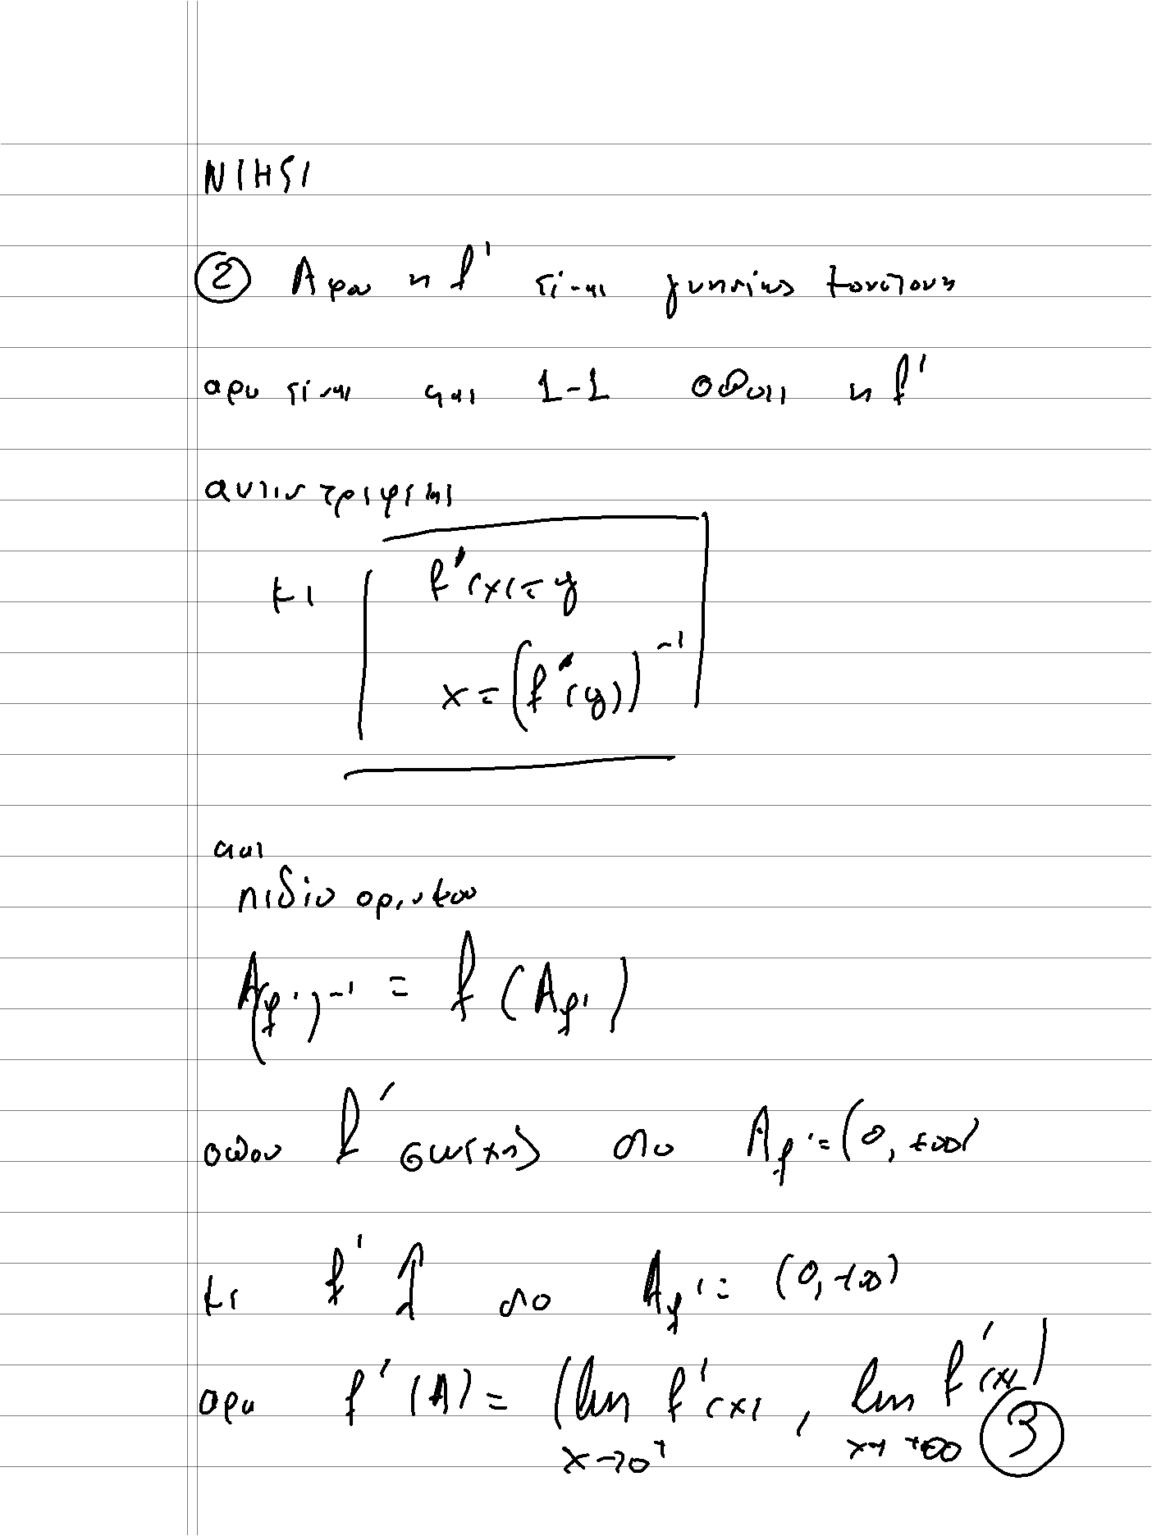 ② Αφου η f' ειναι γνησιως μονοτονη
αρα ειναι και 1-1 οποτε η f'
αντιστρεφεται
με f'(x)=y
x=(f'(y))^{-1}
και
πεδιο ορισμου
A_{(f')^{-1}} = f(A_{f'})
οπου f' συνεχης στο A_{f'}=(0,+∞)
με f' ↑ στο A_{f'}=(0,+∞)
αρα f'(A)= (lim_{x→0^+} f'(x), lim_{x→+∞} f'(x))
③